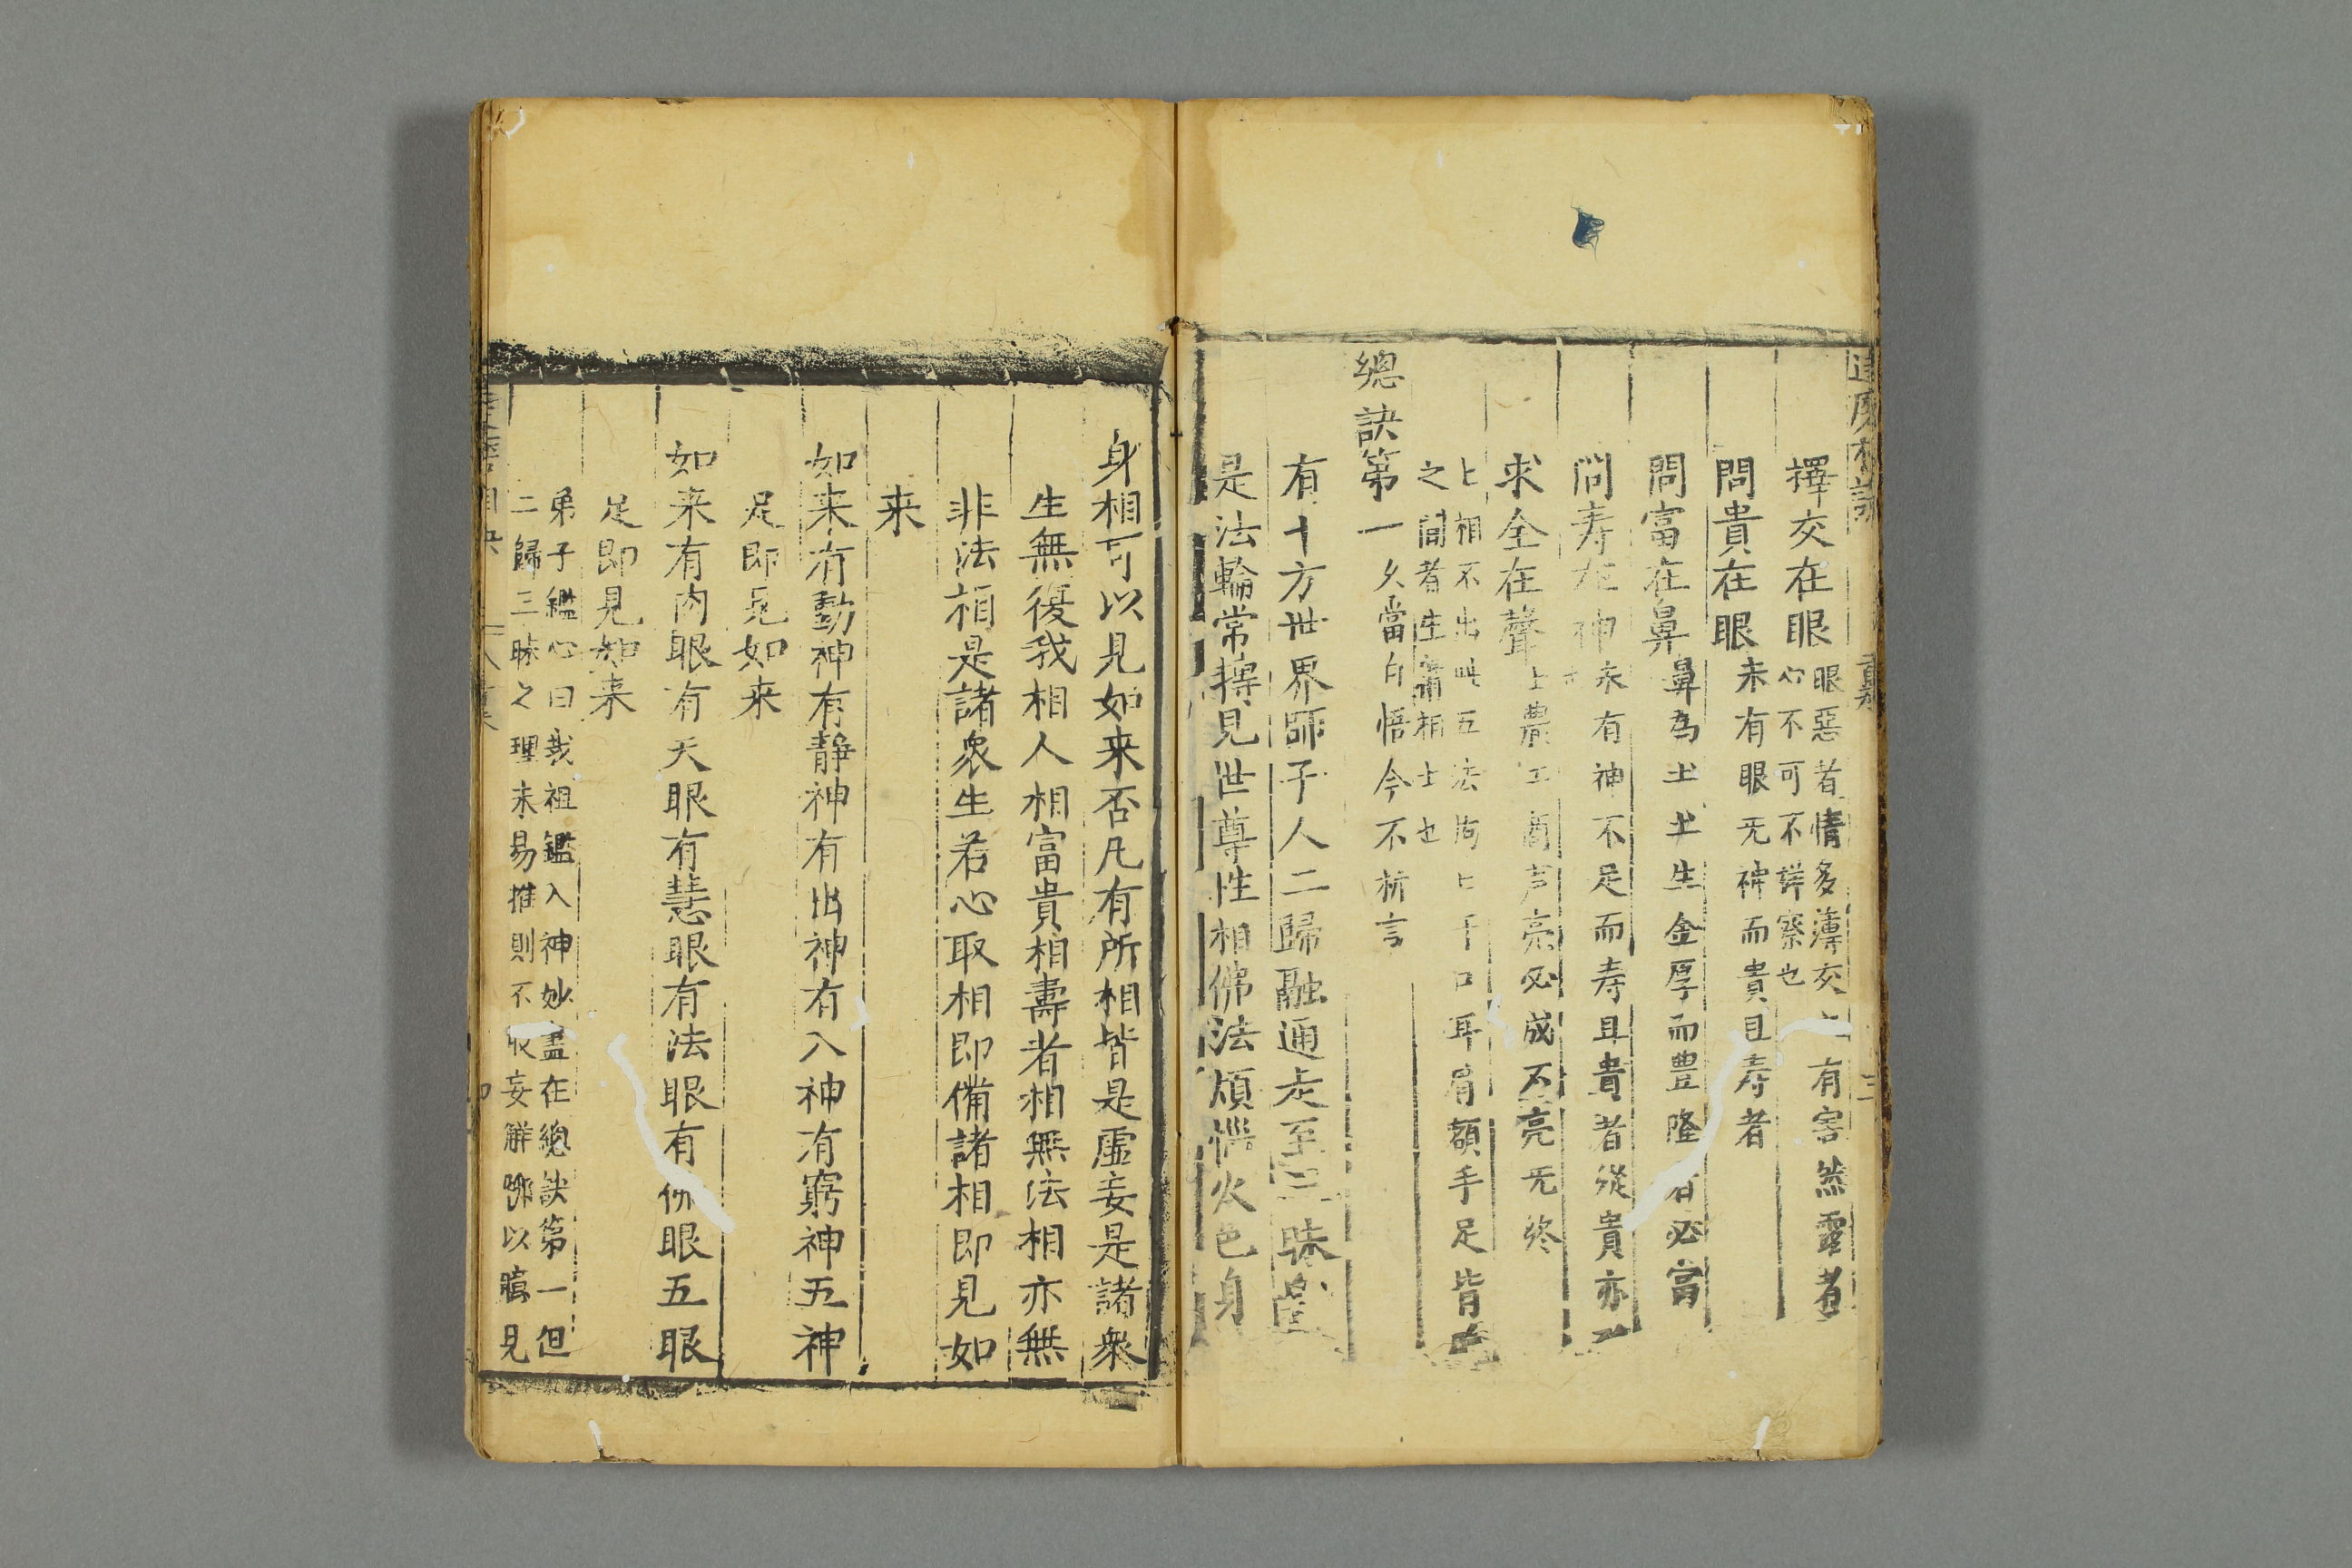 達磨相訣
擇交在眼眼惡者情多薄交之有害然露者
心不可不詳察也
問貴在眼未有眼无神而貴且寿者
問富在鼻鼻為土土生金厚而豊隆者必富
問寿在神未有神不足而寿且貴者從貴亦
求全在聲士農工商声亮必成不亮无终
上相不出此五法拘上于口耳肩額手足皆
之間者生庸相士也
總訣第一久當自悟今不析言
有十方世界師子人二歸融通走至三昧
是法輪常轉見世尊性相佛法煩惱火色身
身相可以見如来否凡有所相皆是虛妄是諸衆
生無復我相人相富貴相壽者相無法相亦無
非法相是諸衆生若心取相即備諸相即見如
来
如来有動神有静神有出神有入神有窮神五神
足即見如来
如来有肉眼有天眼有慧眼有法眼有佛眼五眼
足即見如来
弟子鑑心曰我祖鑑入神妙盡在總訣第一但
二歸三昧之理未易推則不敢妄解聊以臆見